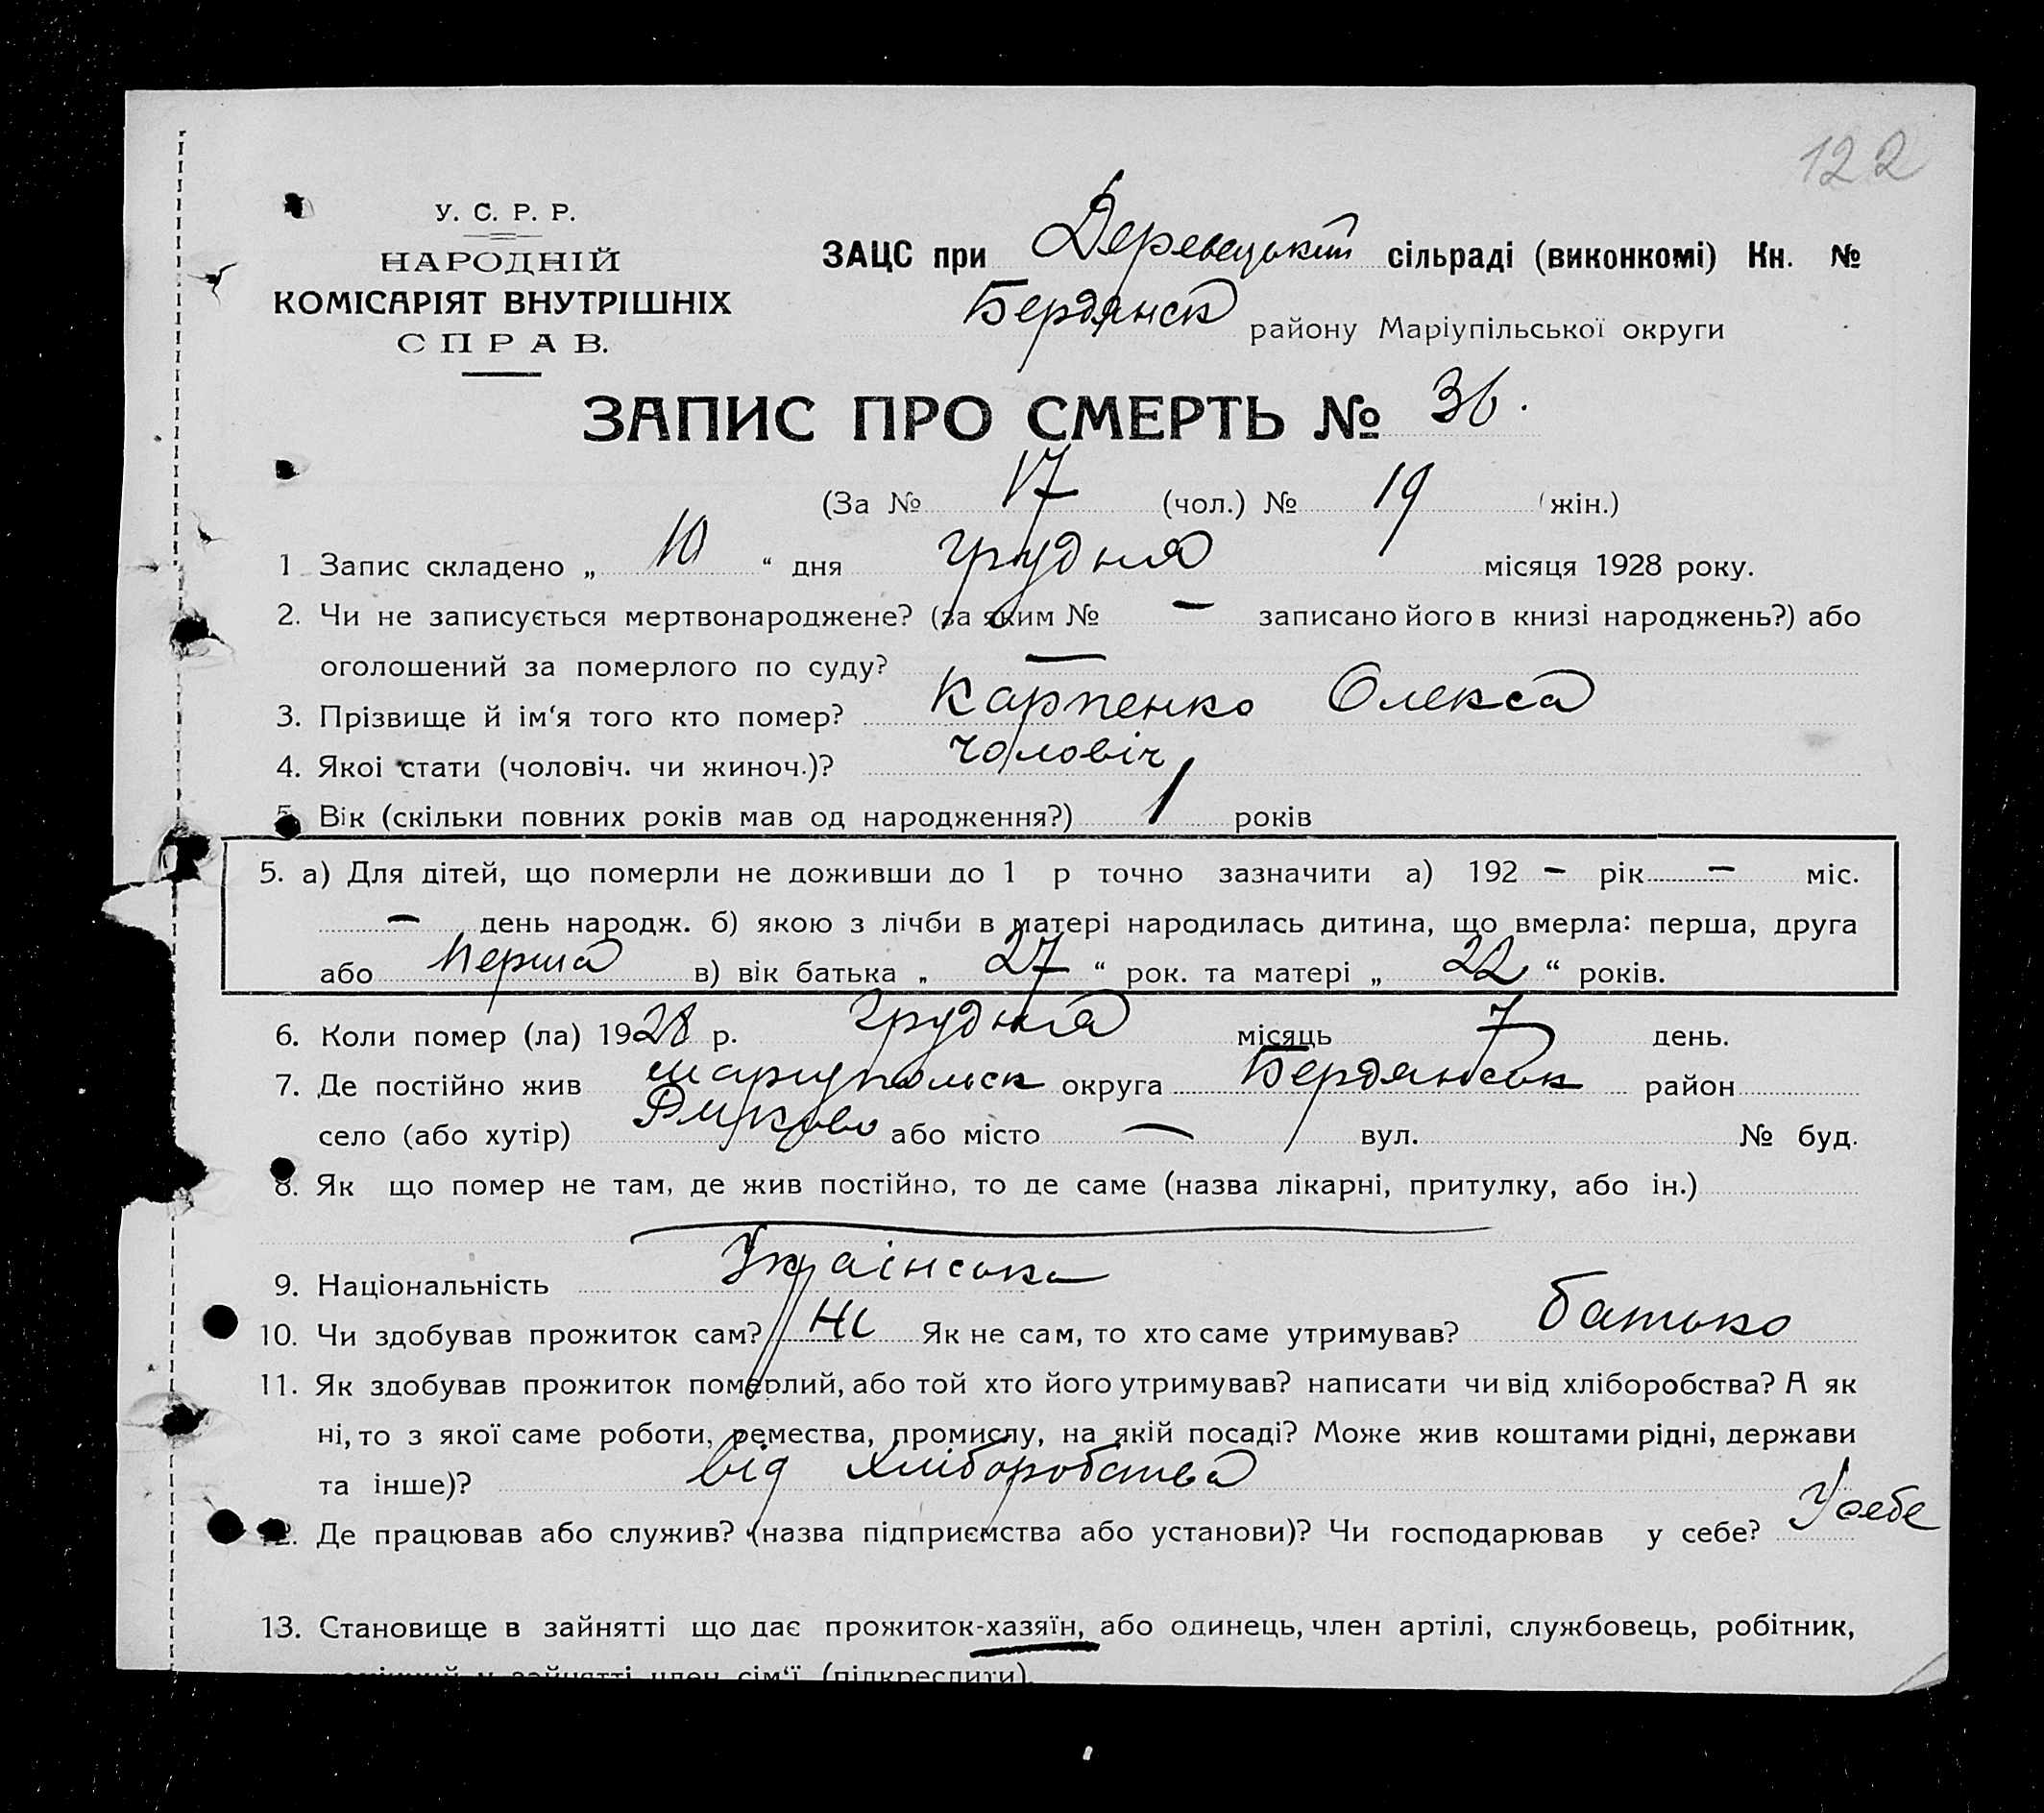 122
У. С. Р. Р.
НАРОДНІЙ
КОМІСАРІЯТ ВНУТРІШНІХ
СПРАВ.
ЗАЦС при Деревецький сільраді (виконкомі) Кн. №
Бердянск району Маріупільської округи
ЗАПИС ПРО СМЕРТЬ № 36.
(За № 17 (чол.) № 19 (жін.)
1 Запис складено „ 10 “ дня грудня місяця 1928 року.
2. Чи не записується мертвонароджене? (за яким № — записано його в книзі народжень?) або
оголошений за померлого по суду? —
3. Прізвище й ім‘я того кто помер? Карпенко Олекса
4. Якоі стати (чоловіч. чи жиноч.)? чоловіч
5. Вік (скільки повних років мав од народження?) 1 років
5. а) Для дітей, що померли не доживши до 1 р точно зазначити а) 192 — рік — міс.
— день народж. б) якою з лічби в матері народилась дитина, що вмерла: перша, друга
або перша в) вік батька „ 27 “ рок. та матері „ 22 “ років.
6. Коли помер (ла) 1928 р. грудня місяць 7 день.
7. Де постійно жив Маріупольск округа Бердянськ район
село (або хутір) або місто — вул. № буд.
8. Як що помер не там, де жив постійно, то де саме (назва лікарні, притулку, або ін.)
9. Національність Українська
10. Чи здобував прожиток сам? Ні Як не сам, то хто саме утримував? батько
11. Як здобував прожиток померлий, або той хто його утримував? написати чи від хліборобства? А як
ні, то з якої саме роботи, ремества, промислу, на якій посаді? Може жив коштами рідні, держави
та інше)? від хліборобства
12. Де працював або служив? (назва підприємства або установи)? Чи господарював у себе? У себе
13. Становище в зайнятті що дає прожиток-хазяїн, або одинець, член артілі, службовець, робітник,
помічний у зайнятті член сім‘ї (підкреслити).